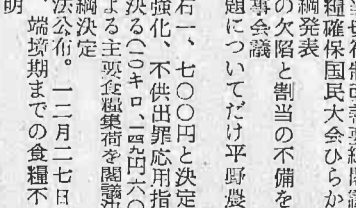 当切符制改善要綱閣議
糧確保国民大会ひらか
綱発表
の欠陥と割当の不備を
事会議
題についてだけ平野農
石一、七〇〇円と決定
強化、不供出罪応用指
決る(一〇キロ、一四九円六〇
よる主要食糧集荷を閣議決
綱決定
法公布。一二月二七日
、端境期までの食糧不
明